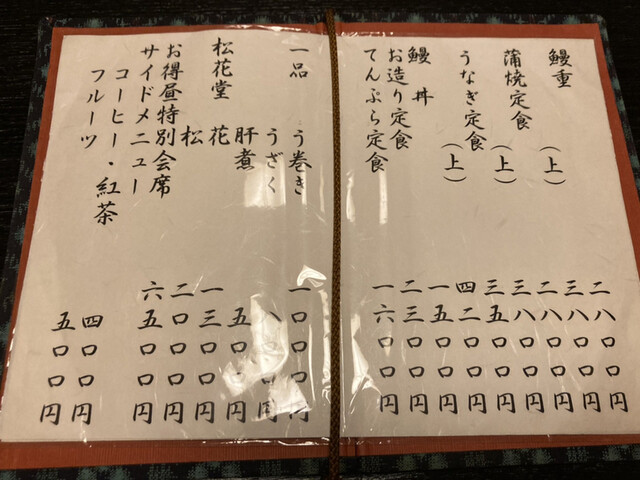 鰻重 二八〇〇円
(上) 三八〇〇円
蒲焼定食 二八〇〇円
(上) 三八〇〇円
うなぎ定食 三五〇〇円
(上) 四二〇〇円
鰻丼 一五〇〇円
お造り定食 二三〇〇円
てんぷら定食 一六〇〇円
一品 う巻き 一〇〇〇円
うざく 八〇〇円
肝煮 五〇〇円
松花堂 花 一三〇〇円
松 二〇〇〇円
お得昼特別会席 六五〇〇円
サイドメニュー
コーヒー・紅茶 四〇〇円
フルーツ 五〇〇円